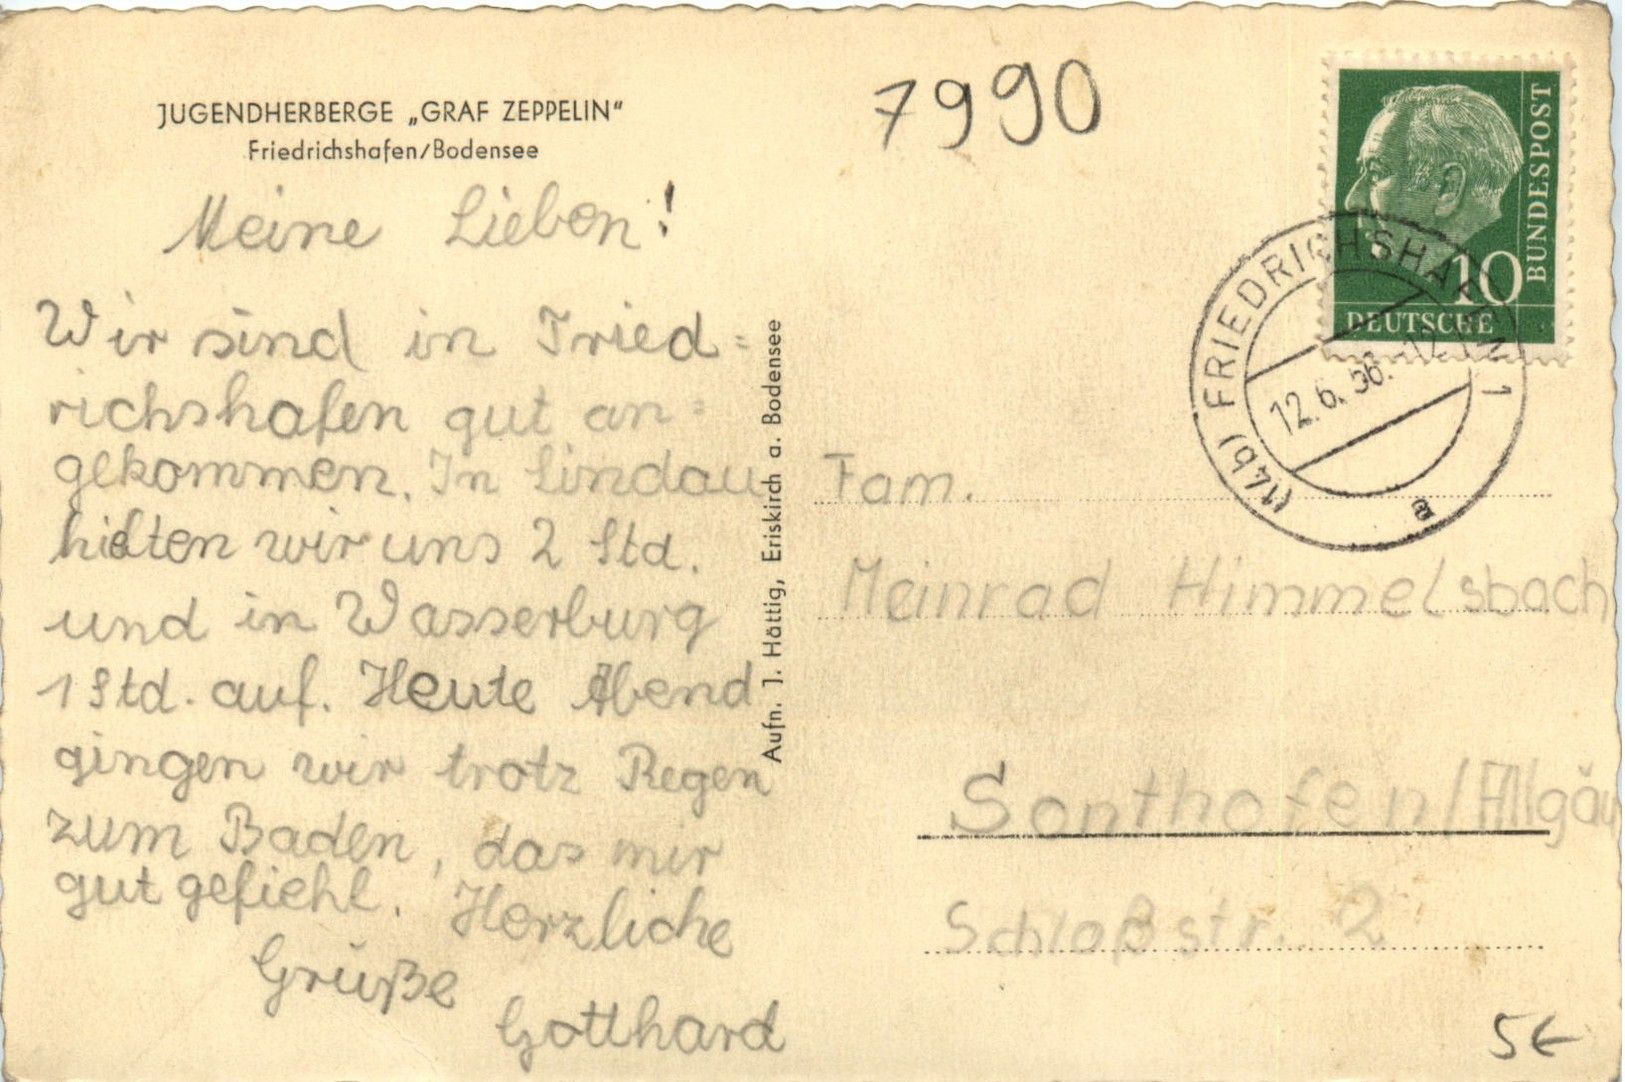 JUGENDHERBERGE „GRAF ZEPPELIN“
Friedrichshafen/Bodensee
Meine Lieben!
Wir sind in Fried=
richshafen gut an=
gekommen. In Lindau
hielten wir uns 2 Std.
und in Wasserburg
1 Std. auf. Heute Abend
gingen wir trotz Regen
zum Baden, das mir
gut gefiehl. Herzliche
Grüße
Gotthard
Aufn. J. Hättig, Eriskirch a. Bodensee
7990
BUNDESPOST
10
DEUTSCHE
(14b) FRIEDRICHSHAFEN 1
12.6.56.-12
a
Fam.
Meinrad Himmelsbach
Sonthofen/Allgäu
Schloßstr. 2
5€